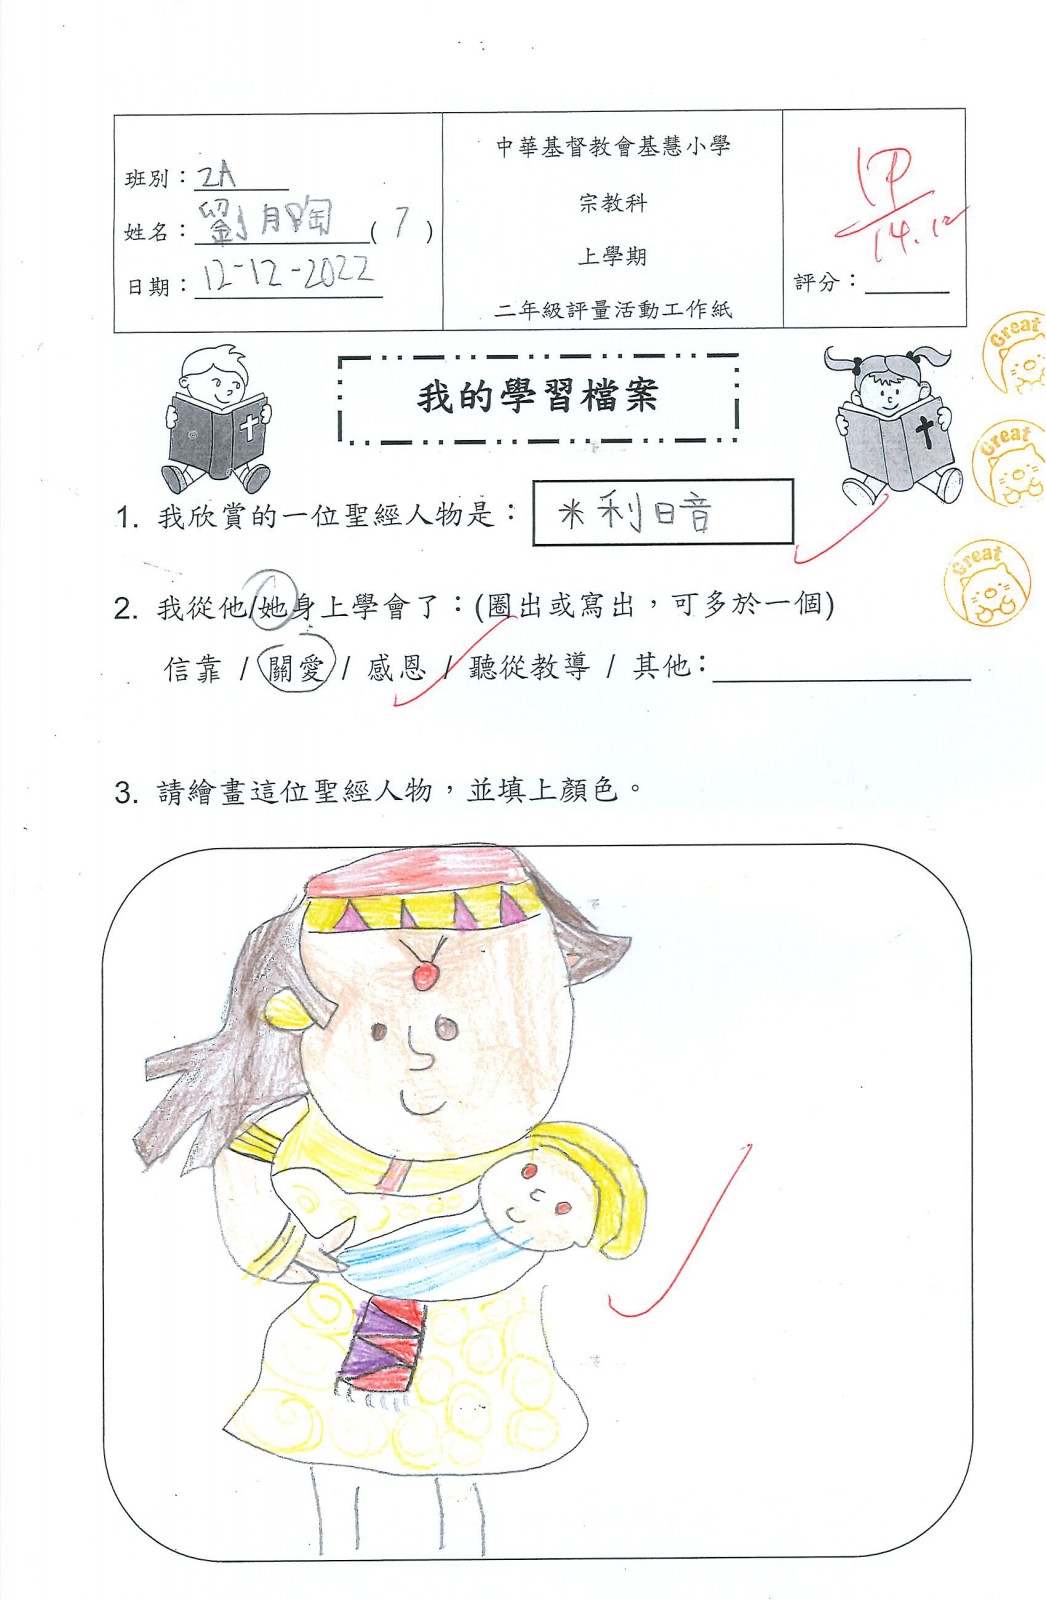 班別：2A
姓名：劉月陶(7)
日期：12-12-2022
中華基督教會基慧小學
宗教科
上學期
二年級評量活動工作紙
甲
14.12
評分：
Great
我的學習檔案
Great
1. 我欣賞的一位聖經人物是：米利暗
Great
2. 我從他/她身上學會了：(圈出或寫出，可多於一個)
信靠 / 關愛 / 感恩 / 聽從教導 / 其他：
3. 請繪畫這位聖經人物，並填上顏色。